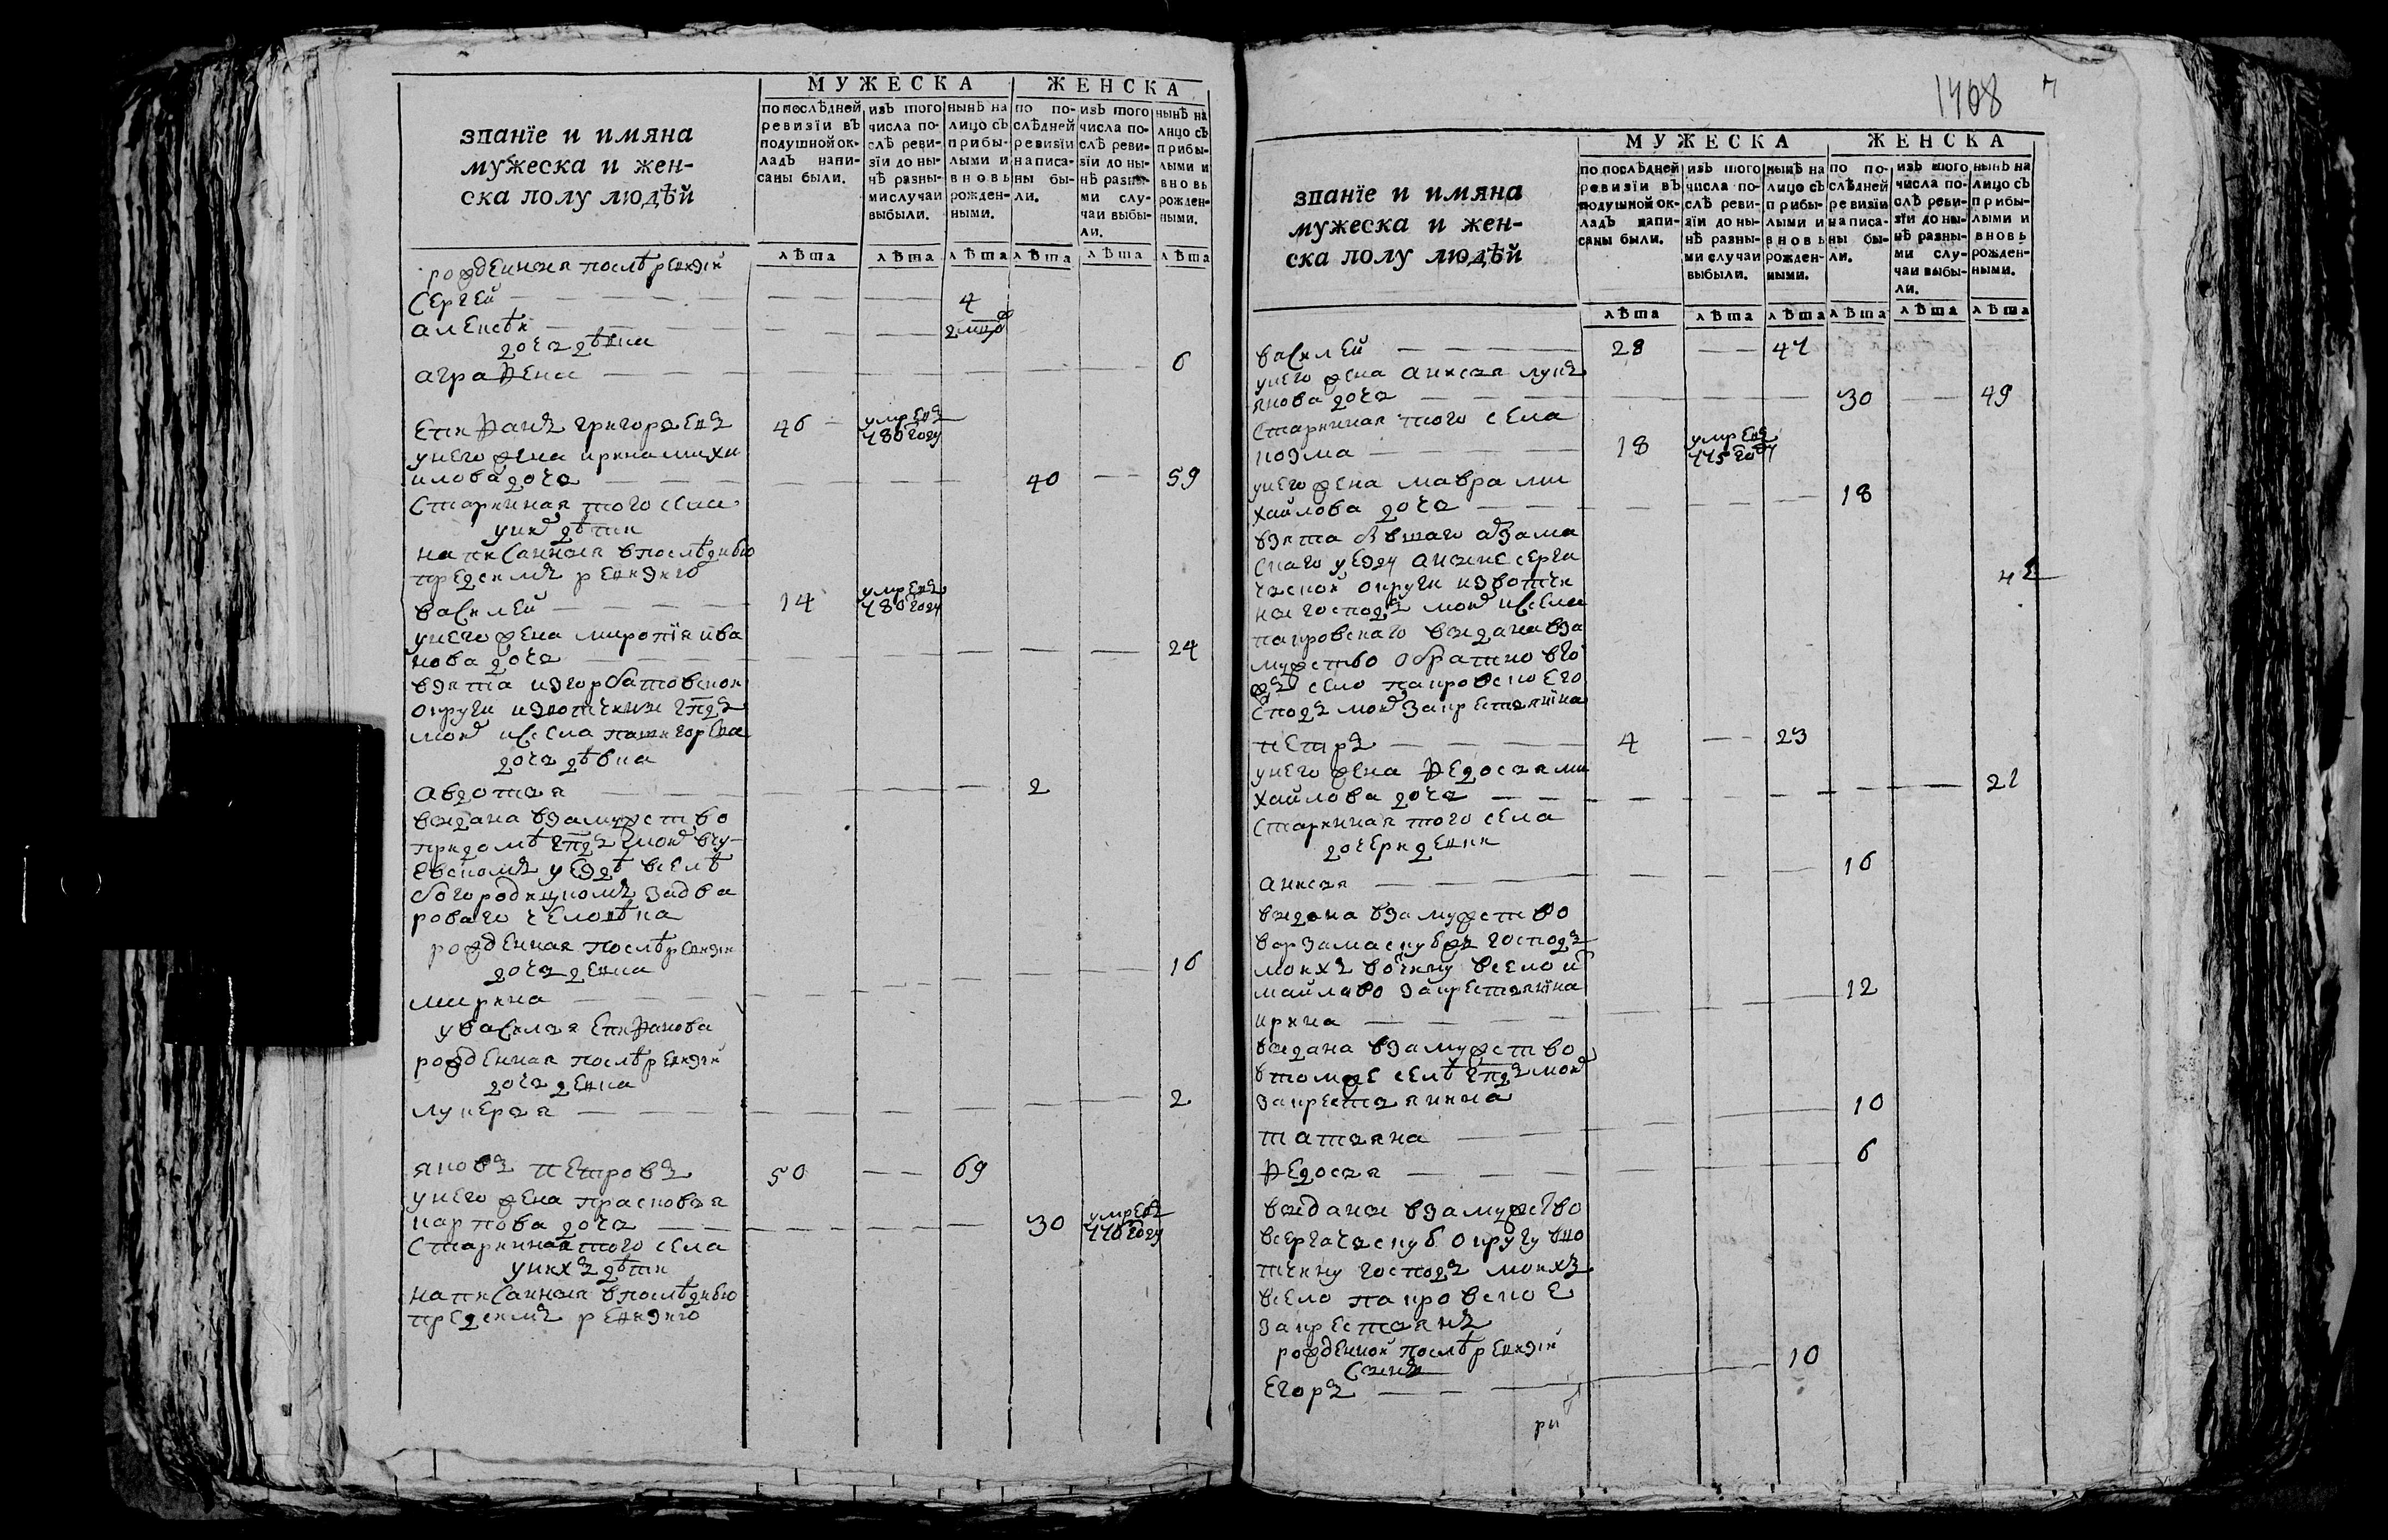 званїе и имяна
мужеска и жен-
ска полу людѣй
МУЖЕСКА
ЖЕНСКА
по послѣдней ревизїи въ подушной ок- ладъ напи- саны были.
изъ того числа по- слѣ реви- зїи до ны- нѣ разны- ми случаи выбыли.
нынѣ на лицо съ прибы- лыми и вновь рожден- ными.
по по- слѣдней ревизїи написа- ны бы- ли.
изъ того числа по- слѣ реви- зїи до ны- нѣ разны- ми слу- чаи выбы- ли.
нынѣ на лицо съ прибы- лыми и вновь рожден- ными.
лѣта лѣта лѣта лѣта лѣта лѣта
рожденныя послѣ ревизіи
Сергей 4
алексѣи
дочь дѣвка
аграфена 6
епифанъ григорьевъ 46 умре въ 780 году
у него жена ирина миха
илова дочь 40 59
старинная того села
у них дѣти
написанныя в последнюю
пред сим ревизию
василей 14 умре въ 780 году
у него жена миропїя ива
нова дочь 24
взята из горбатовскои
округи из вотчины гпдъ
моих ис села
дочь дѣвка
авдотья 2
выдана в замужство
придомѣ гпдъ моих
уездѣ в селѣ
богородицкомъ за дво
роваго человѣка
рожденная послѣ ревизіи
дочь девка
марина 16
у василья епифанова
рожденная послѣ ревизіи
дочь девка
лукерья 2
яковъ петровъ 50 69
у него жена прасковья
карпова дочь 30 умре въ 776 году
старинная того села
у ихъ дѣти
написанныя в последнюю
пред симъ ревизию
1408
званїе и имяна
мужеска и жен-
ска полу людѣй
МУЖЕСКА
ЖЕНСКА
по послѣдней ревизїи въ подушной ок- ладъ напи- саны были.
изъ того числа по- слѣ реви- зїи до ны- нѣ разны- ми случаи выбыли.
нынѣ на лицо съ прибы- лыми и вновь рожден- ными.
по по- слѣдней ревизїи написа- ны бы- ли.
изъ того числа по- слѣ реви- зїи до ны- нѣ разны- ми слу- чаи выбы- ли.
нынѣ на лицо съ прибы- лыми и вновь рожден- ными.
лѣта лѣта лѣта лѣта лѣта лѣта
василей 28 47
у него жена анисья лукъ
янова дочь 30 49
старинная того села
козма 18 умре въ 775 году
у него жена мавра ми
хайлова дочь 18
взята бывшаго арзама
скаго уезду а ныне серга
чаской округи из вотчи
ны господъ моих ис села
покровскаго выдана в за
мужство обратно в то
жъ село покровское го
сподъ моих за крестьянина
петръ 4 23
у него жена федосья ми
хайлова дочь 22
старинная того села
дочери девки
анисья 16
выдана в замужство
в арзамаскую господъ
моихъ вотчину в село
за крестьянина
ирина 12
выдана в замужство
в томже селѣ гпдъ моих
за крестьянина
татьяна 10
федосья 6
выданы в замужство
в сергачаскую округу в во
тчину господъ моихъ
в село покровское
за крестьянъ
рожденной послѣ ревизіи
сынъ
егоръ 10